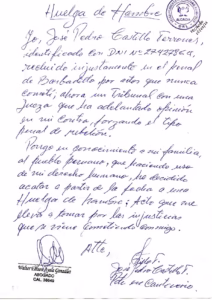 Huelga de Hambre
Yo, José Pedro Castillo Terrones,
identificado con DNI Nº
recluido injustamente en el penal
de Barbadillo por actos que nunca
cometí; ahora un Tribunal con una
Jueza que ha adelantado opinión
en mi contra, forzando el tipo
penal de rebelión.
Pongo en conocimiento a mi familia,
al pueblo peruano, que haciendo uso
de mi derecho humano, he decidido
acatar a partir de la fecha a una
Huelga de Hambre; Acto que me
llevó a tomar por las injusticias
que se viene cometiendo conmigo.
Atte,
José Pedro Castillo T.
ABOGADO